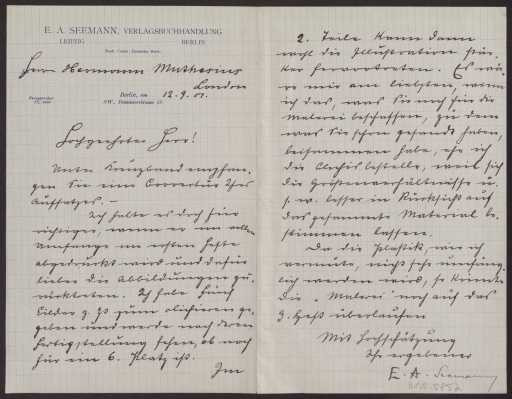 E. A. SEEMANN, VERLAGSBUCHHANDLUNG
LEIPZIG BERLIN
Herrn Hermann Muthesius
London
Berlin, den 12.9.01.
Hochgeehrter Herr!
Unter Kreuzband empfan-
gen Sie eine Correctur Ihres
Aufsatzes. —
Ich halte es doch für
richtiger, wenn er im vollen
Umfange im ersten Hefte
abgedruckt wird und dafür
lieber die Abbildungen zu-
rücktreten. Ich habe fünf
Bilder z. Zt zum clichieren ge-
geben und werde nach deren
Fertigstellung sehen, ob noch
für ein 6. Platz ist.
Im
2. Teile kann dann
wohl die Illustration stär-
ker hervortreten. Es wä-
re mir am liebsten, wenn
ich das, was Sie noch für die
Malerei beschaffen, zu dem
was Sie schon gesandt haben,
beisammen habe, ehe ich
die Clichés bestelle, weil sich
die Größenverhältnisse u.
s. w. besser in Rücksicht auf
das gesammte Material be-
stimmen lassen.
Da die Plastik, wie ich
vermute, nicht sehr umfäng-
lich werden wird, so könnte
die „Malerei" noch auf das
3. Heft überlaufen
Mit Hochschätzung
Ihr ergebener
E. A. Seemann